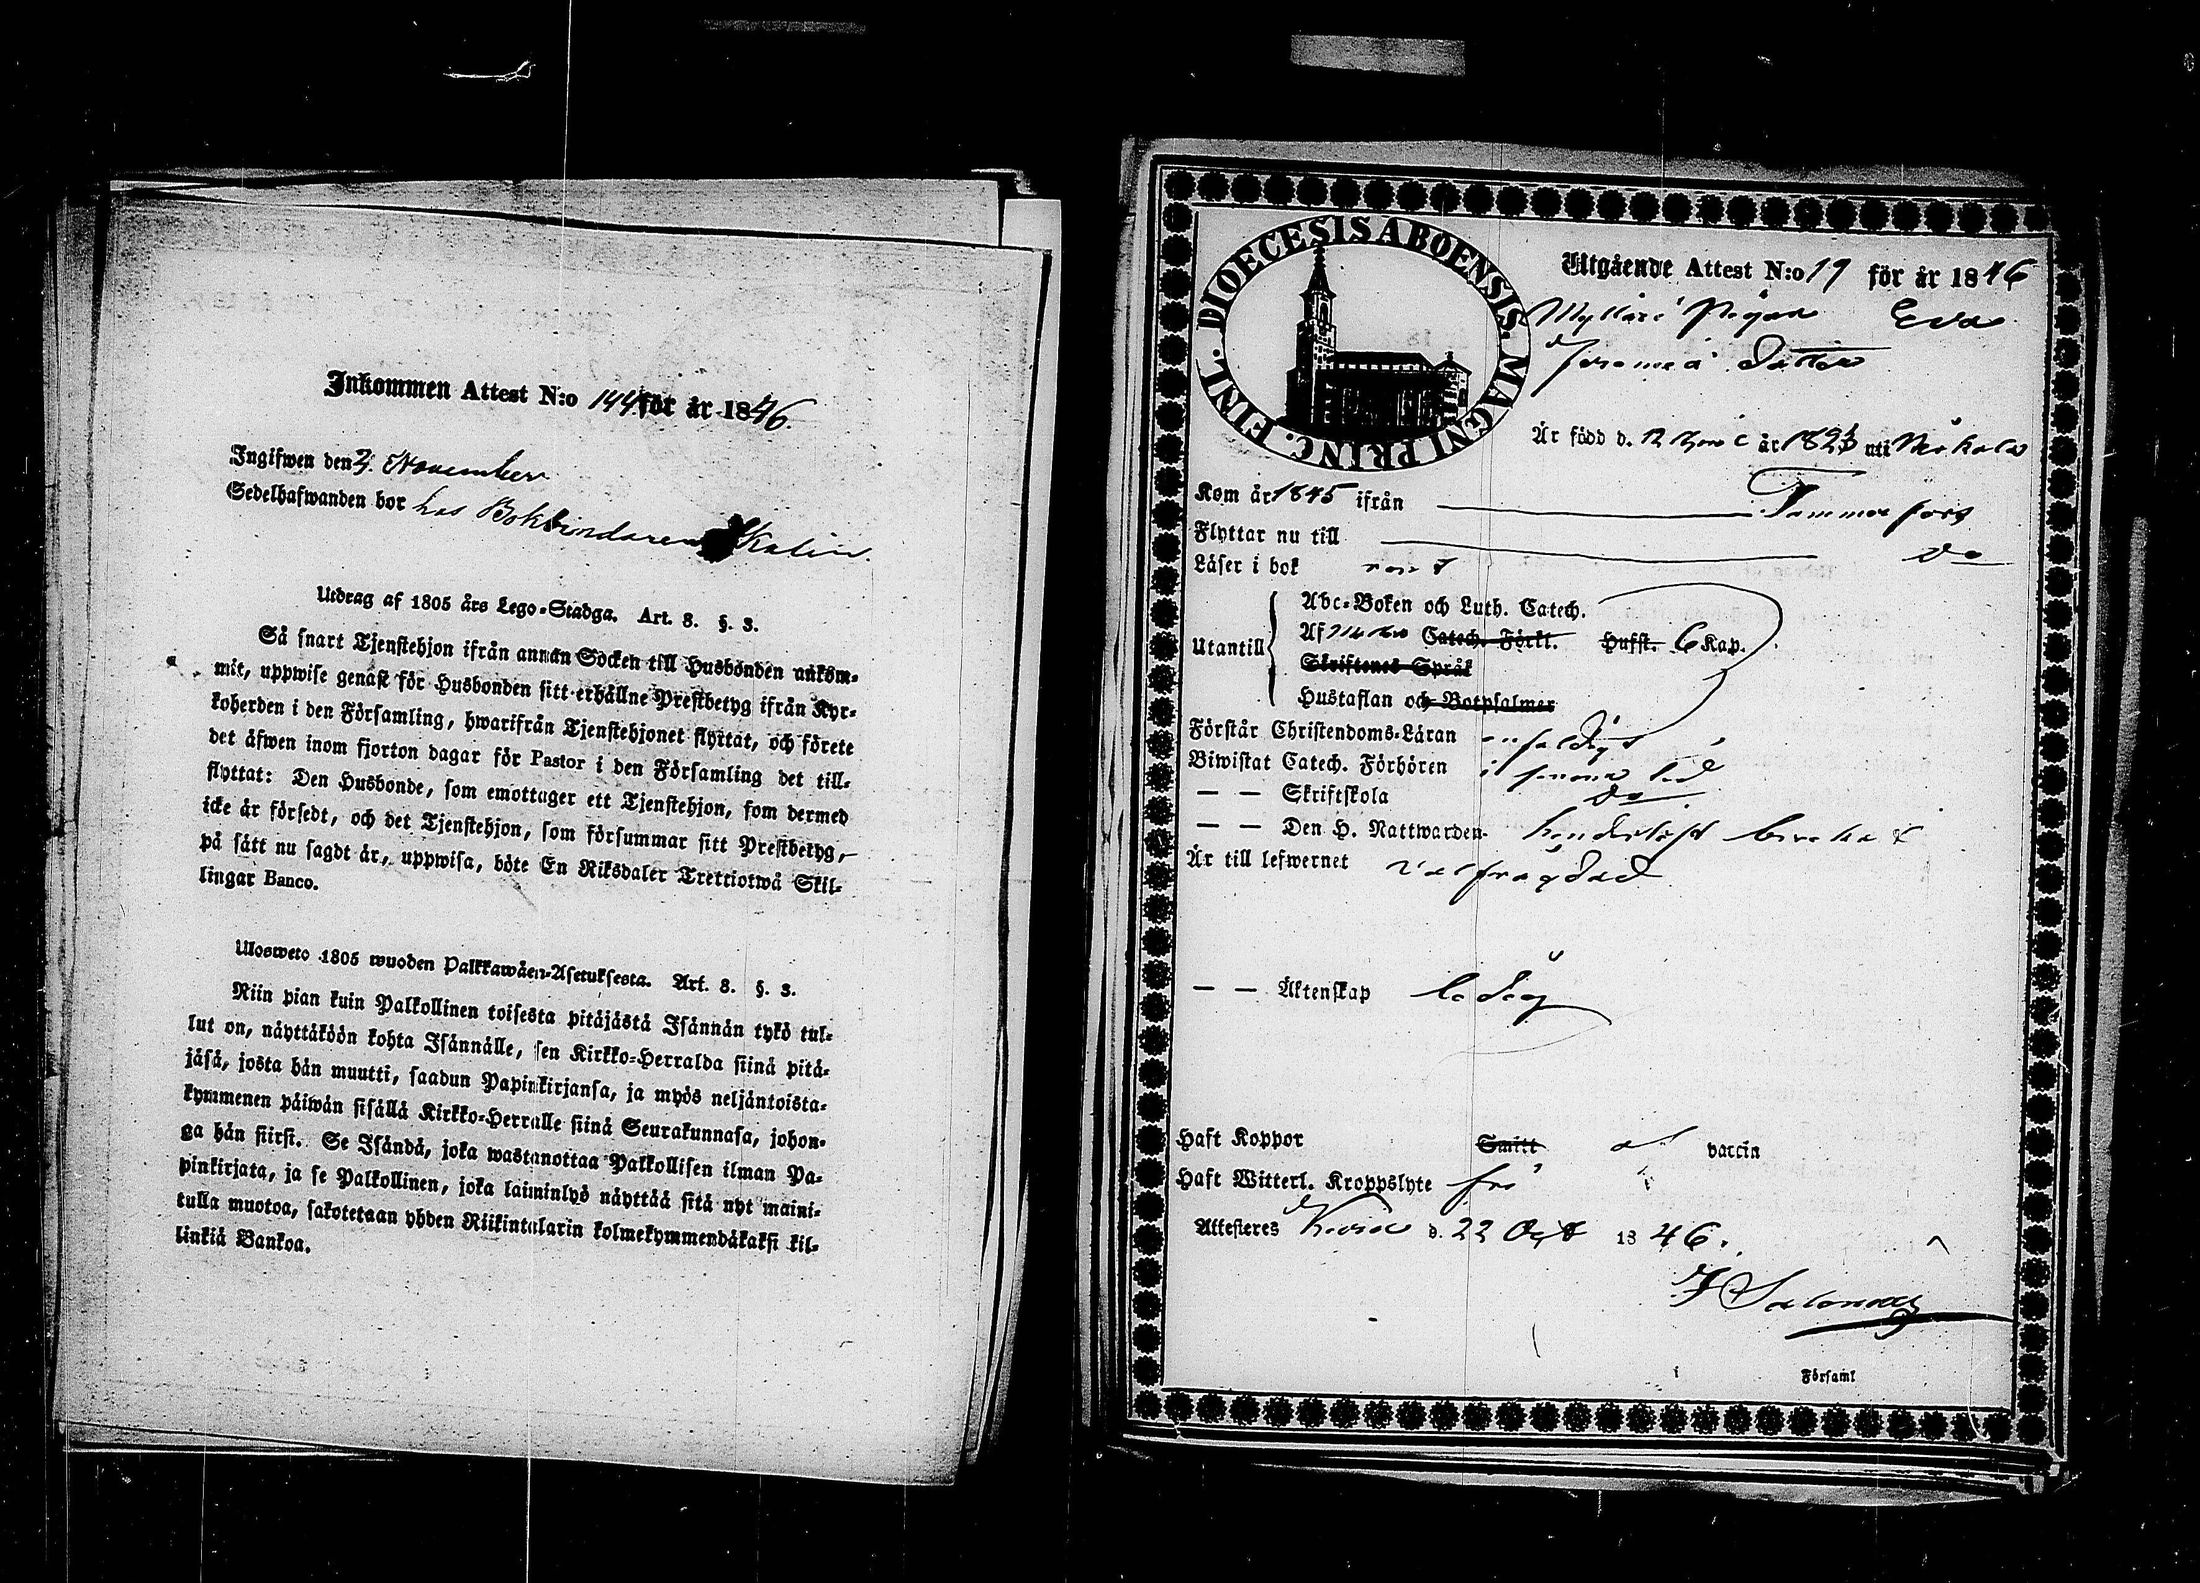 Inkommen Attest N:o 144 för år 1846.
Ingifwen den 2 November
Sedelhafwanden bor hos Bokbindaren Kalin.
Utdrag af 1805 års Lego-Stadga. Art. 8. §. 3.
Så snart Tjenstehjon ifrån annan Socken till Husbonden ankom-
mit, uppwise genast för Husbonden sitt erhållne Prestbetyg ifrån Kyr-
koherden i den Församling, hwarifrån Tjenstehjonet flyttat, och förete
det äfwen inom fjorton dagar för Pastor i den Församling det till-
flyttat: Den Husbonde, som emottager ett Tjenstehjon, som dermed
icke är försedt, och det Tjenstehjon, som försummar sitt Prestbetyg,
på sätt nu sagdt är, uppwisa, böte En Riksdaler Trettiotwå Skil-
lingar Banco.
Ulosweto 1805 wuoden Palkkawäen-Asetuksesta. Art. 8. §. 3.
Niin pian kuin Palkollinen toisesta pitäjästä Isännän tykö tul-
lut on, näyttäköön kohta Isännälle, sen Kirkko-Herralda siinä pitä-
jäsä, josta hän muutti, saadun Papinkirjansa, ja myös neljäntoista-
kymmenen päiwän sisällä Kirkko-Herralle siinä Seurakunnasa, johon-
ga hän siirsi. Se Isändä, joka wastanottaa Palkollisen ilman Pa-
pinkirjata, ja se Palkollinen, joka laiminlyö näyttää sitä nyt maini-
tulla muotoa, sakotetaan yhden Riikintalarin kolmekymmendäkaksi kil-
linkiä Bankoa.
DIOECESIS ABOENSIS. MAGNI PRINC. FINL.
Utgående Attest N:o 19 för år 1846
Mylläri Pigan Eva
Jeremiæ Dotter
Är född d. 12 år 182 uti
Kom år 1845 ifrån Tammerfors
Flyttar nu till Do
Läser i bok rent
Utantill
Abc-Boken och Luth. Catech.
Af Catech. Förkl. Husst. 6 Kap.
Skriftenes Språk
Hustaflan och Botpsalmer
Förstår Christendoms-Läran enfaldigt
Biwistat Catech. Förhören i
— — Skriftskola Do
— — Den H. Nattwarden
Är till lefwernet välfrägdad
— — Äktenskap ledig
Haft Koppor Smitt vaccin
Haft Witterl. Kroppslyte fri
Attesteres d. 22 Oct 1846.
Församl